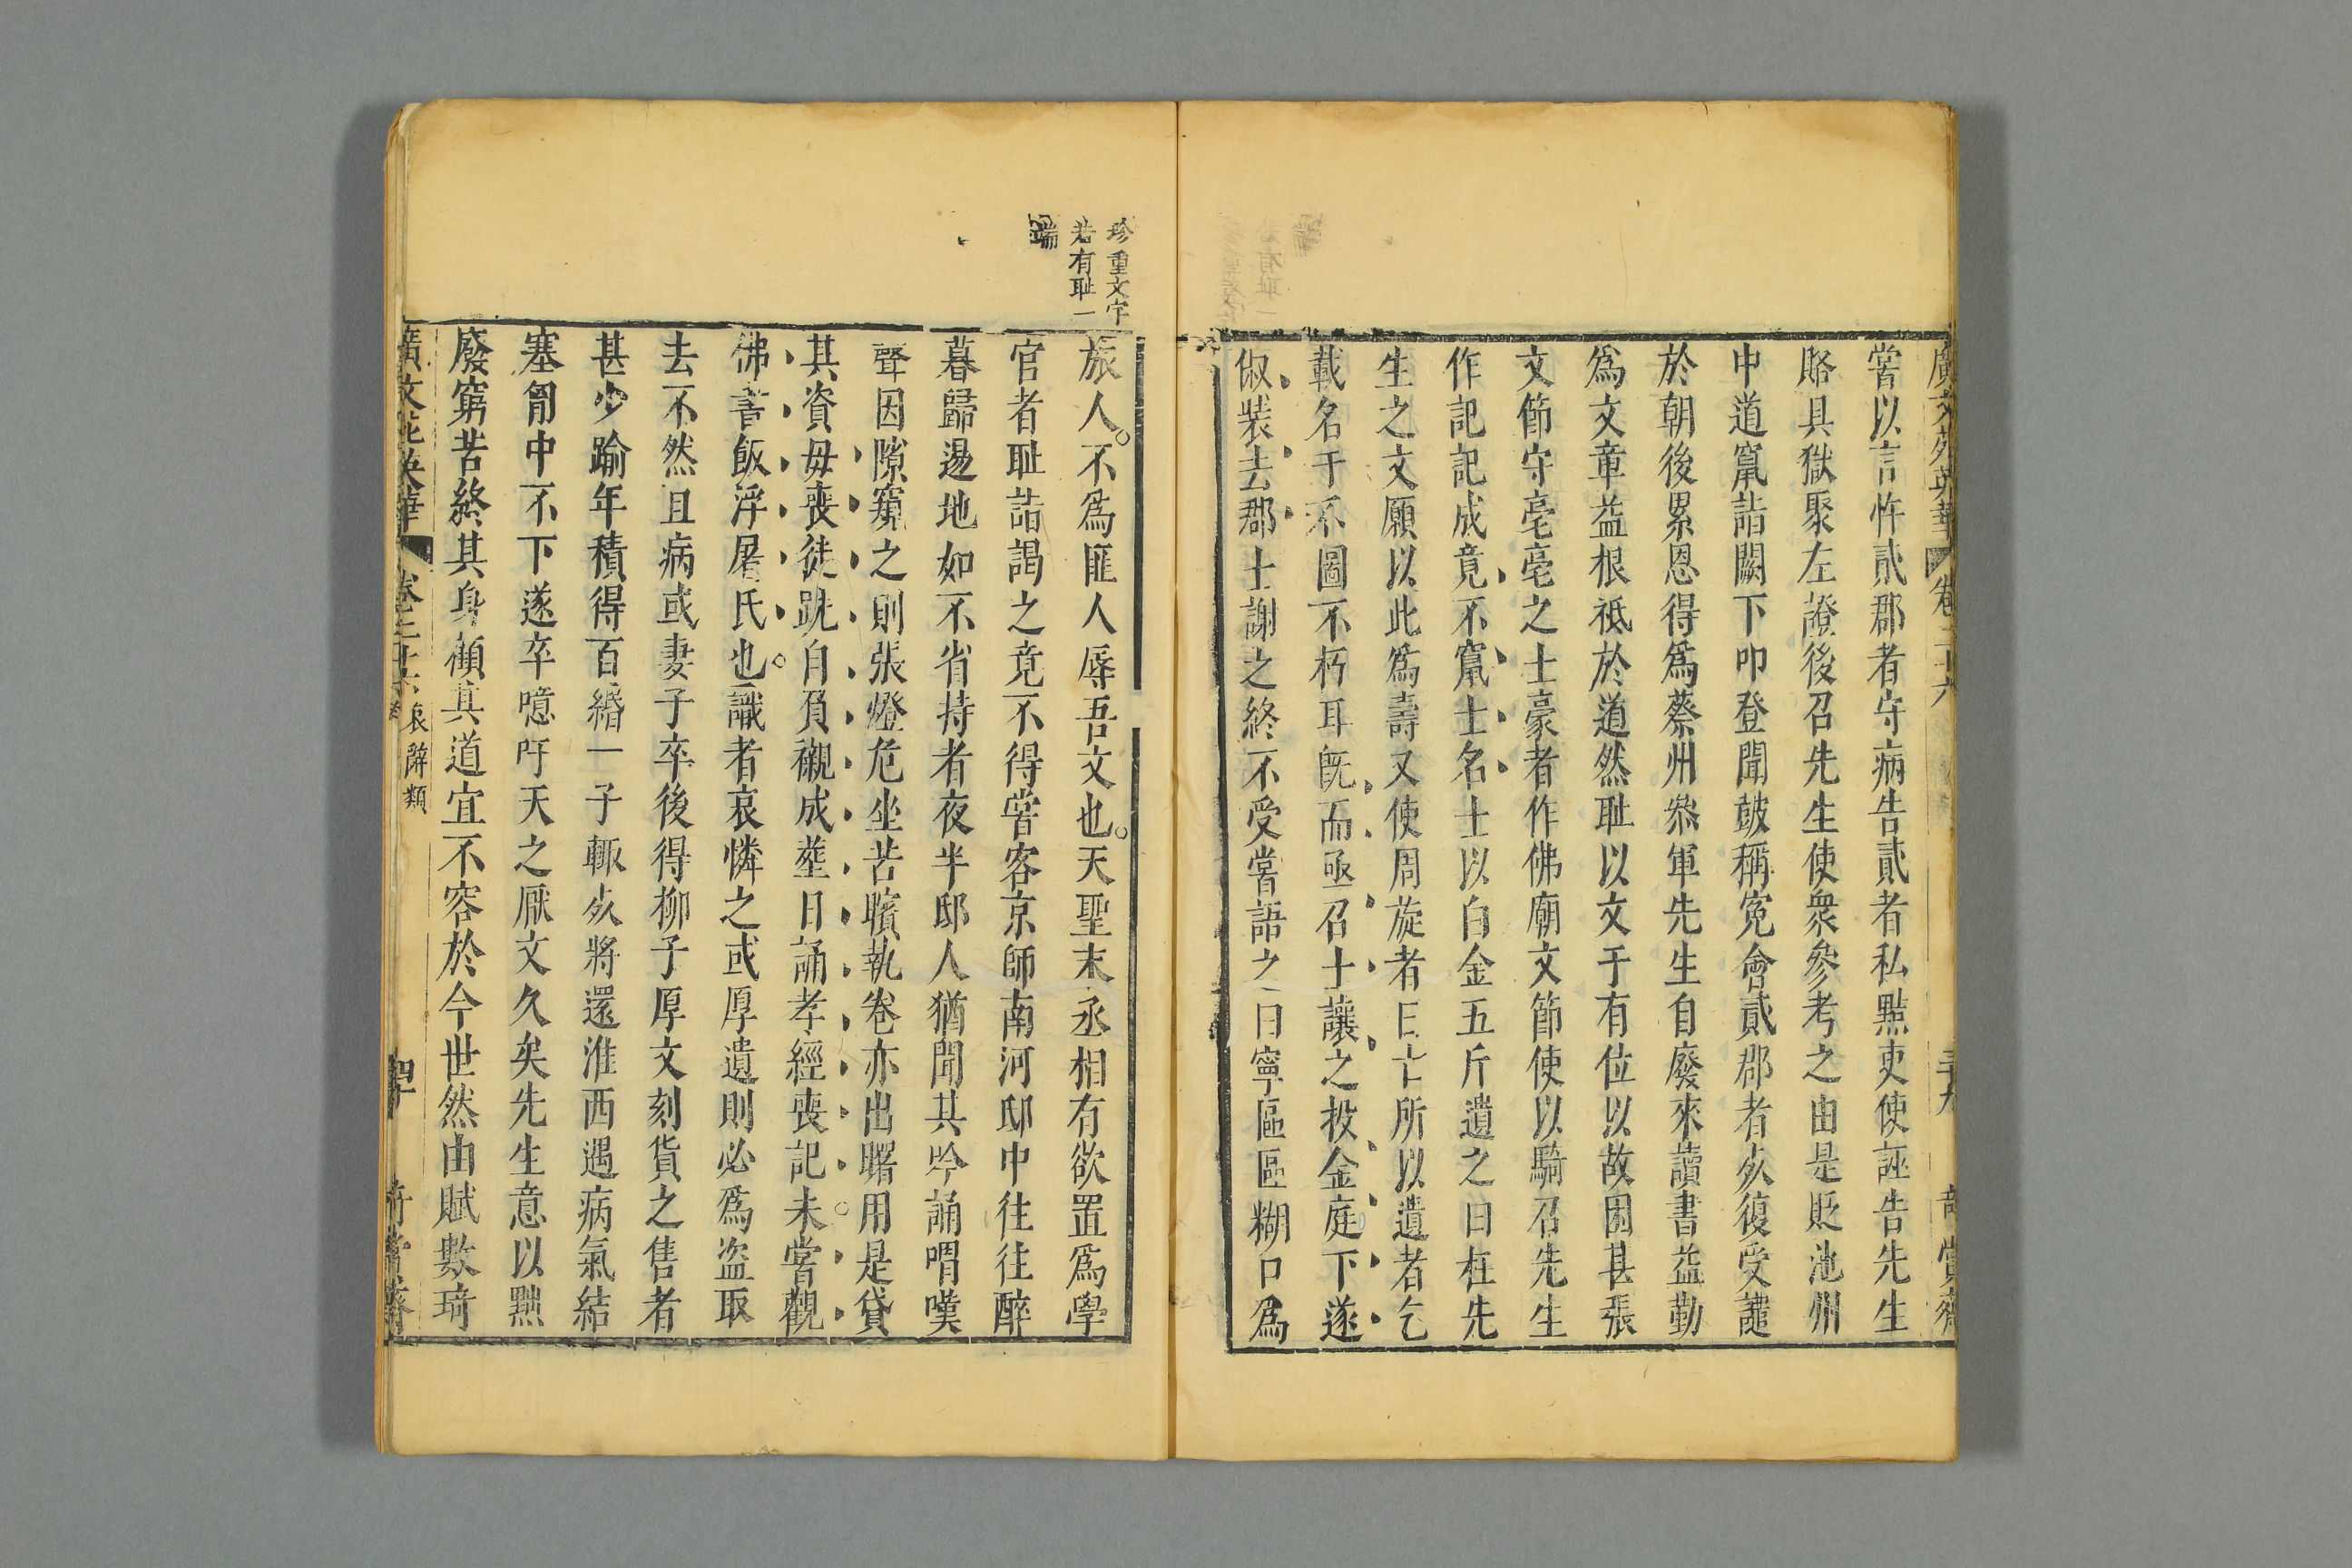 廣文苑英華 卷二十六 三十九 奇賞齋
嘗以言忤貳郡者守病告貳者私黠吏使誣告先生
賂具獄聚左證後召先生使衆參考之由是貶池州
中道竄詣闕下叩登聞皷稱寃會貳郡者死復受譴
於朝後累恩得爲蔡州叅軍先生自廢來讀書益勤
爲文章益根祗於道然耻以文于有位以故困甚張
文節守亳亳之士豪者作佛廟文節使以騎召先生
作記記成竟不竄士名士以白金五斤遺之曰枉先
生之文願以此爲壽又使周旋者曰亡所以遺者乞
載名于不圖不朽耳旣而亟召士讓之投金庭下遂
俶裝去郡士謝之終不受嘗語之曰寧區區糊口爲
珍重文字
若有耻一
端
旅人不爲匪人辱吾文也天聖末丞相有欲置爲學
官者耻詣謁之竟不得嘗客京師南河邸中往往醉
暮歸邊地如不省持者夜半邸人猶聞其吟誦喟嘆
聲因隙窺之則張燈危坐苦矉執卷亦出曙用是貸
其資母喪徒跣自負櫬成塟日誦孝經喪記未嘗觀
佛書飯浮屠氏也識者哀憐之或厚遺則必爲盜取
去不然且病或妻子卒後得柳子厚文刻貨之售者
甚少踰年積得百緡一子輙死將還淮西遇病氣結
塞胷中不下遂卒噫吁天之厭文久矣先生意以黜
廢窮苦終其身顚其道宜不容於今世然由賦數琦
廣文苑英華 卷二十六 哀辭類 四十 奇賞齋